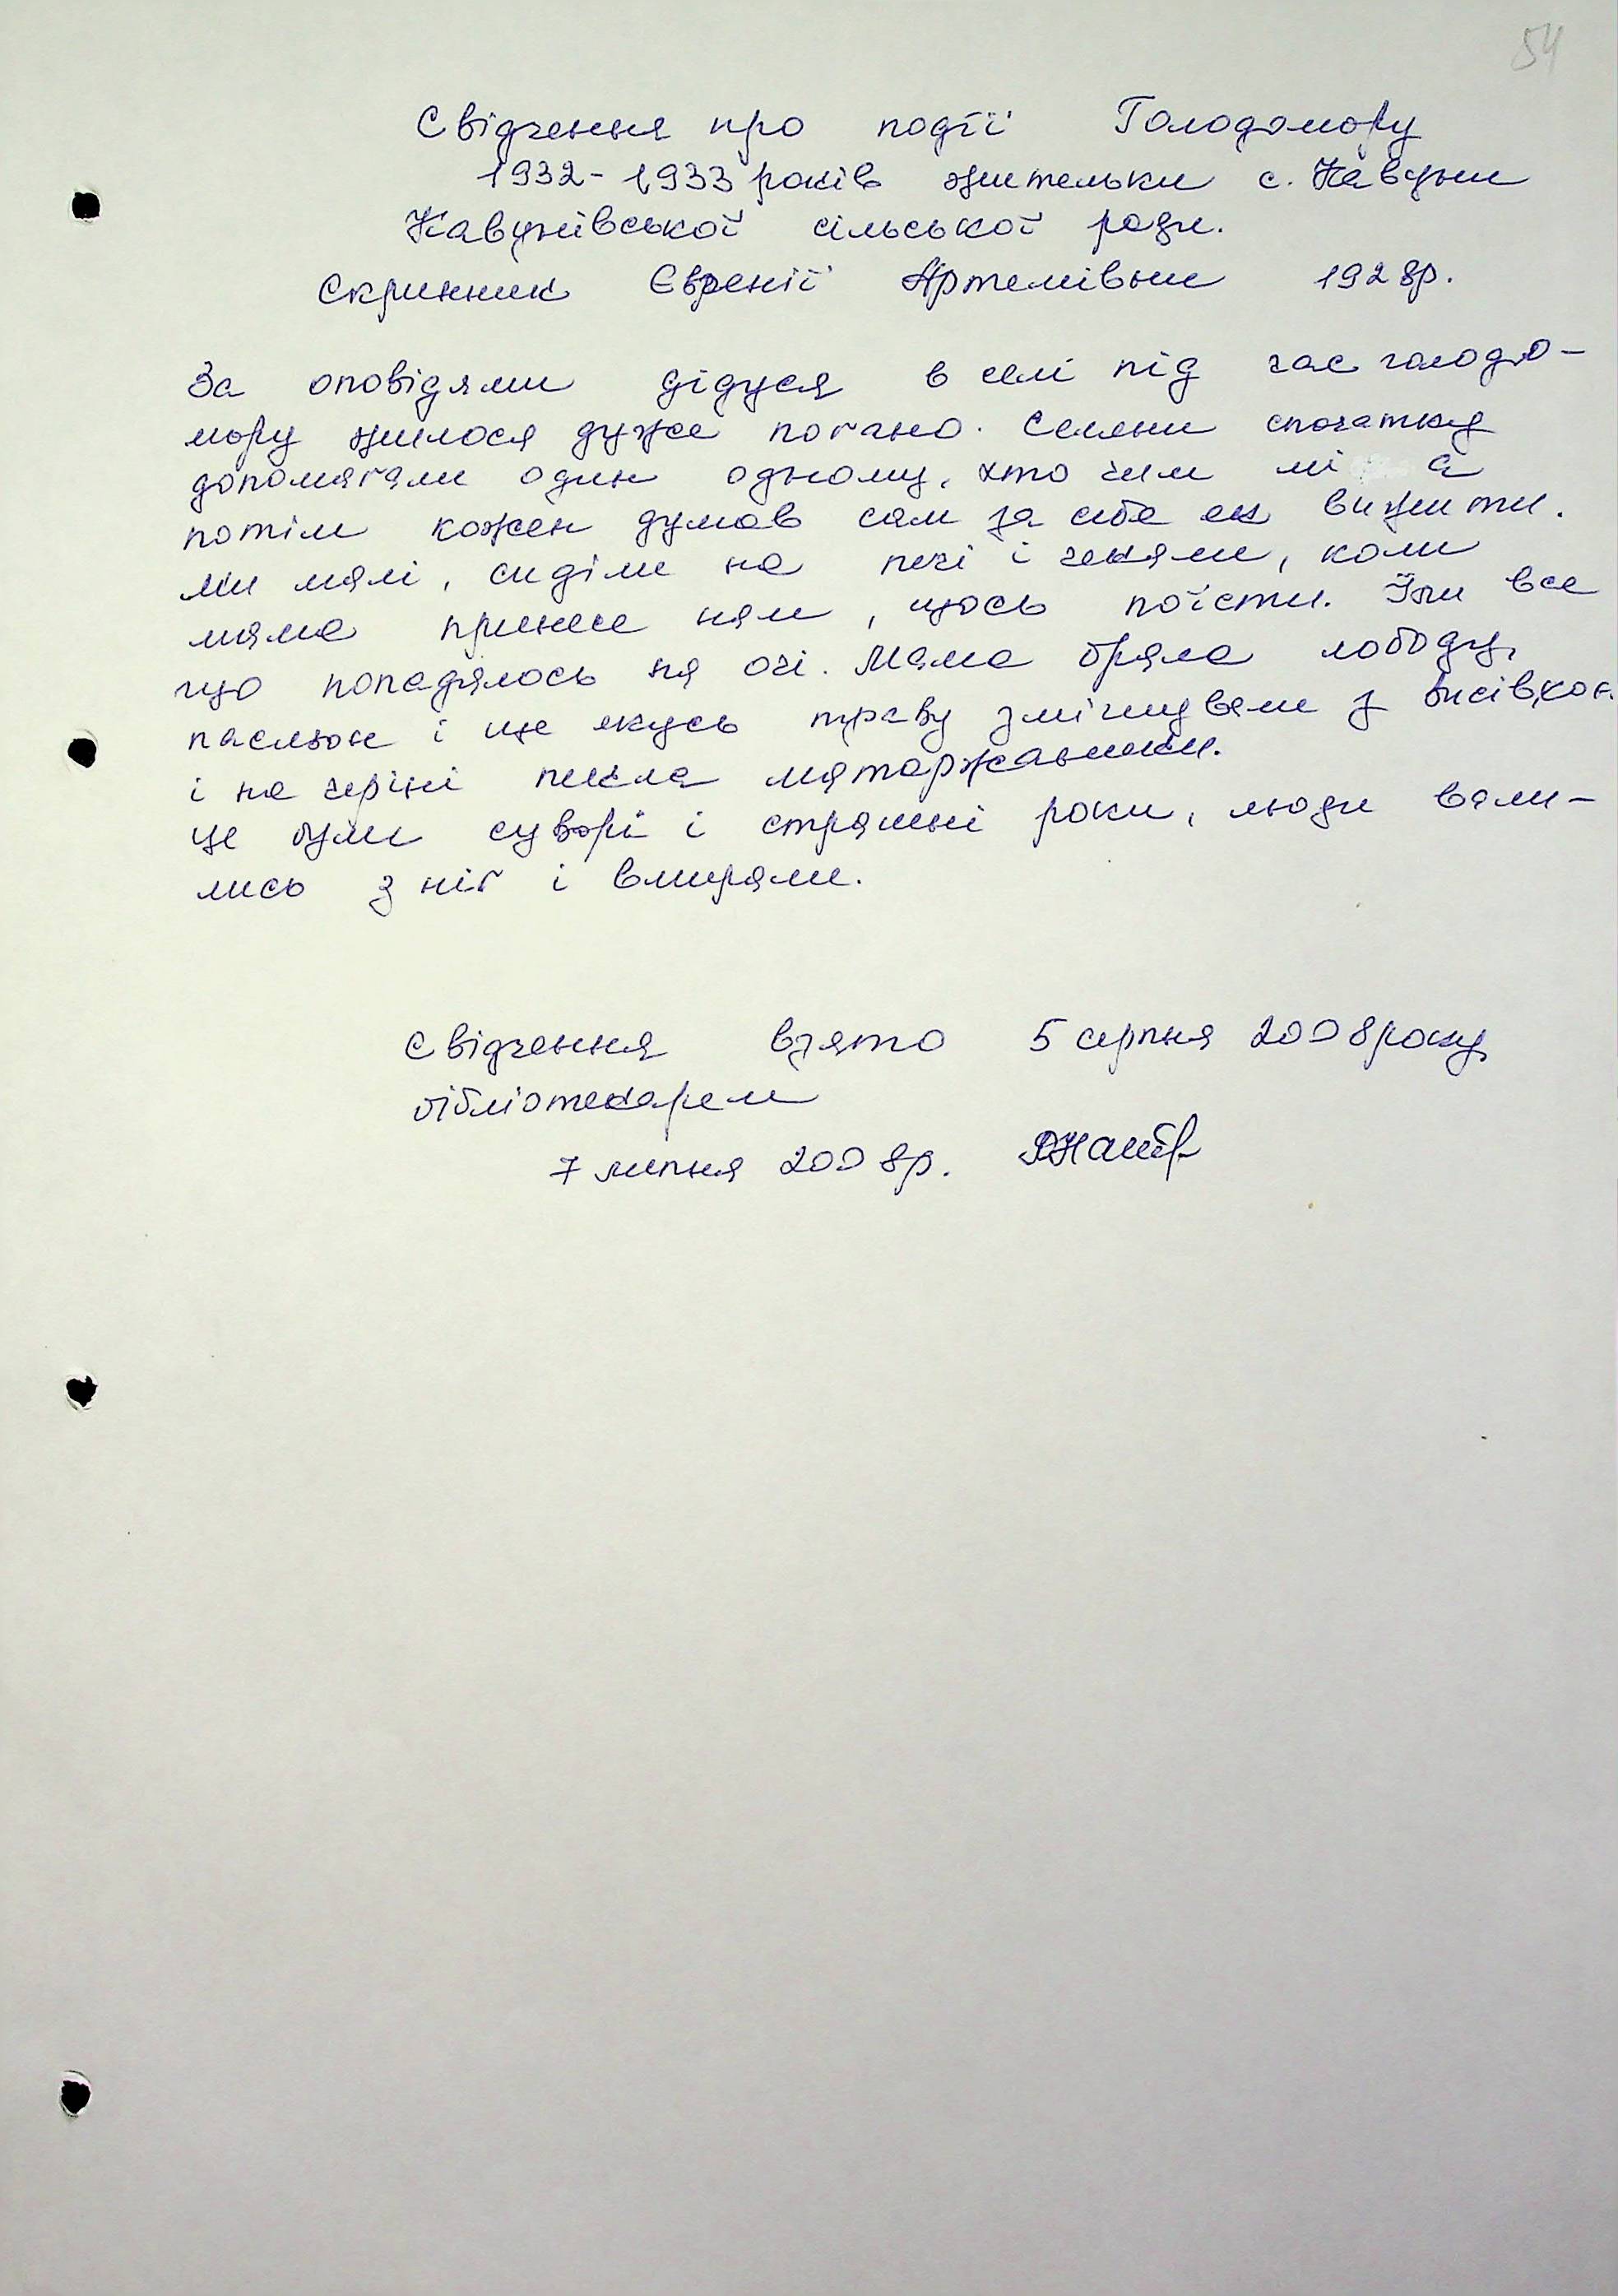 54
Свідчення про події Голодомору
1932-1933 років жительки с. Кавуни
Кавунівської сільської ради.
Скринник Євгенії Артемівни 1928р.
За оповідями дідуся в селі під час голодо-
мору жилося дуже погано. Селяни спочатку
допомагали один одному, хто чим мі а
потім кожен думав сам за себе як вижити.
Ми малі, сиділи на печі і чекали, коли
мама принесе нам, щось поїсти. Їли все
що попадалось на очі. Мама брала лободу,
пасльон і ще якусь траву змішували з висівкою
і на черіні пекла маторжаники.
Це були суворі і страшні роки, люди вали-
лись з ніг і вмирали.
Свідчення взято 5 серпня 2008року
бібліотекарем
7 липня 2008р.